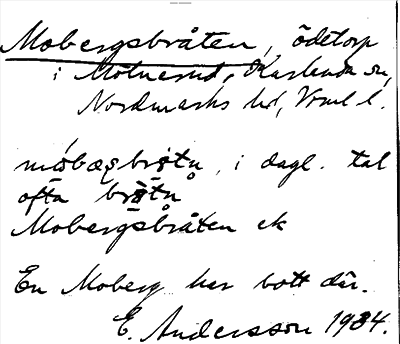 Mobergsbråten, ödetorp
i Mölnerud, Karlanda sn,
Nordmarks hd, Vrml l.
i dagl. tal
ofta
Mobergsbråten ek
En Moberg har bott där.
E. Andersson 1934.